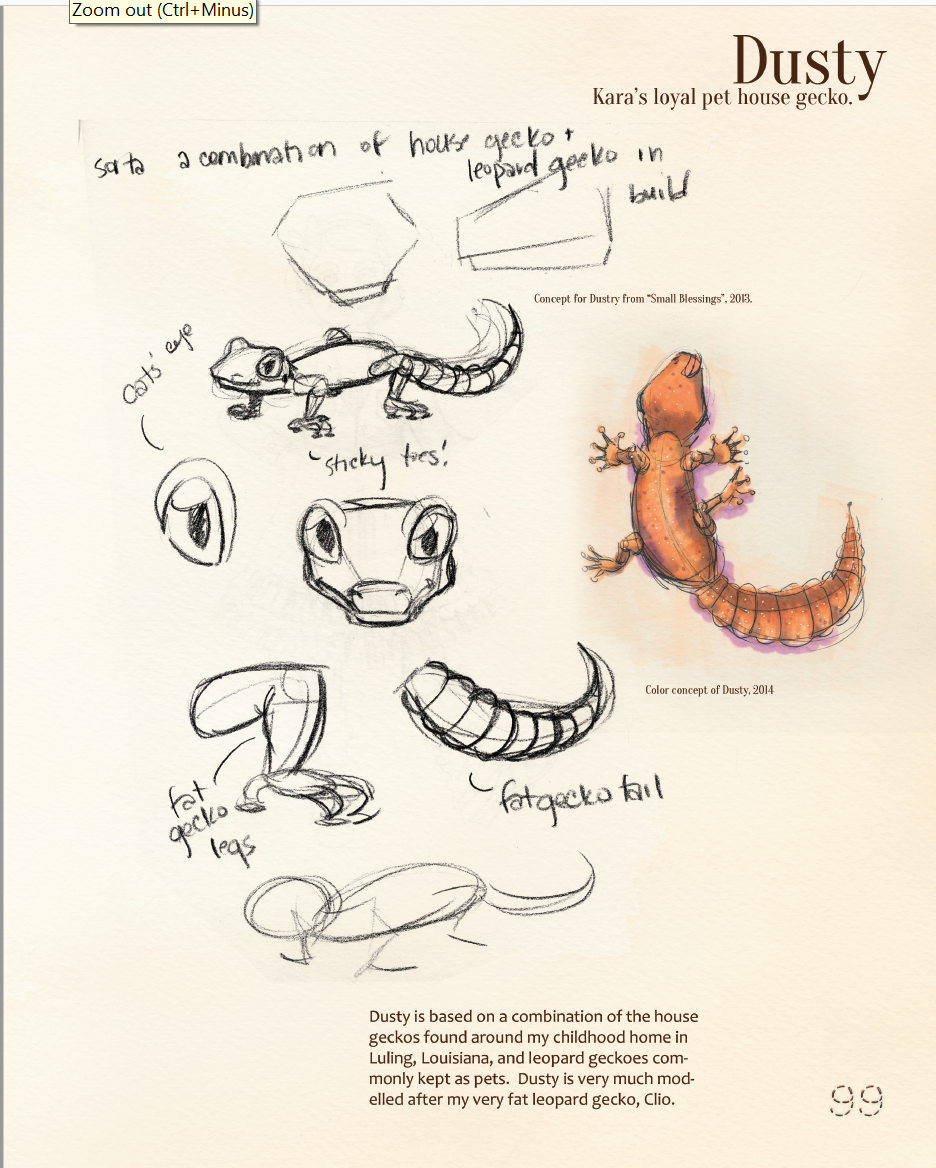 Zoom out (Ctrl+Minus)
Dusty
Kara's loyal pet house gecko.
sorta a combination of house gecko +
leopard gecko in
build
Concept for Dustry from "Small Blessings", 2013.
Cats' eye
sticky toes!
Color concept of Dusty, 2014
fat
gecko
legs
fat gecko tail
Dusty is based on a combination of the house
geckos found around my childhood home in
Luling, Louisiana, and leopard geckoes com-
monly kept as pets. Dusty is very much mod-
elled after my very fat leopard gecko, Clio.
99